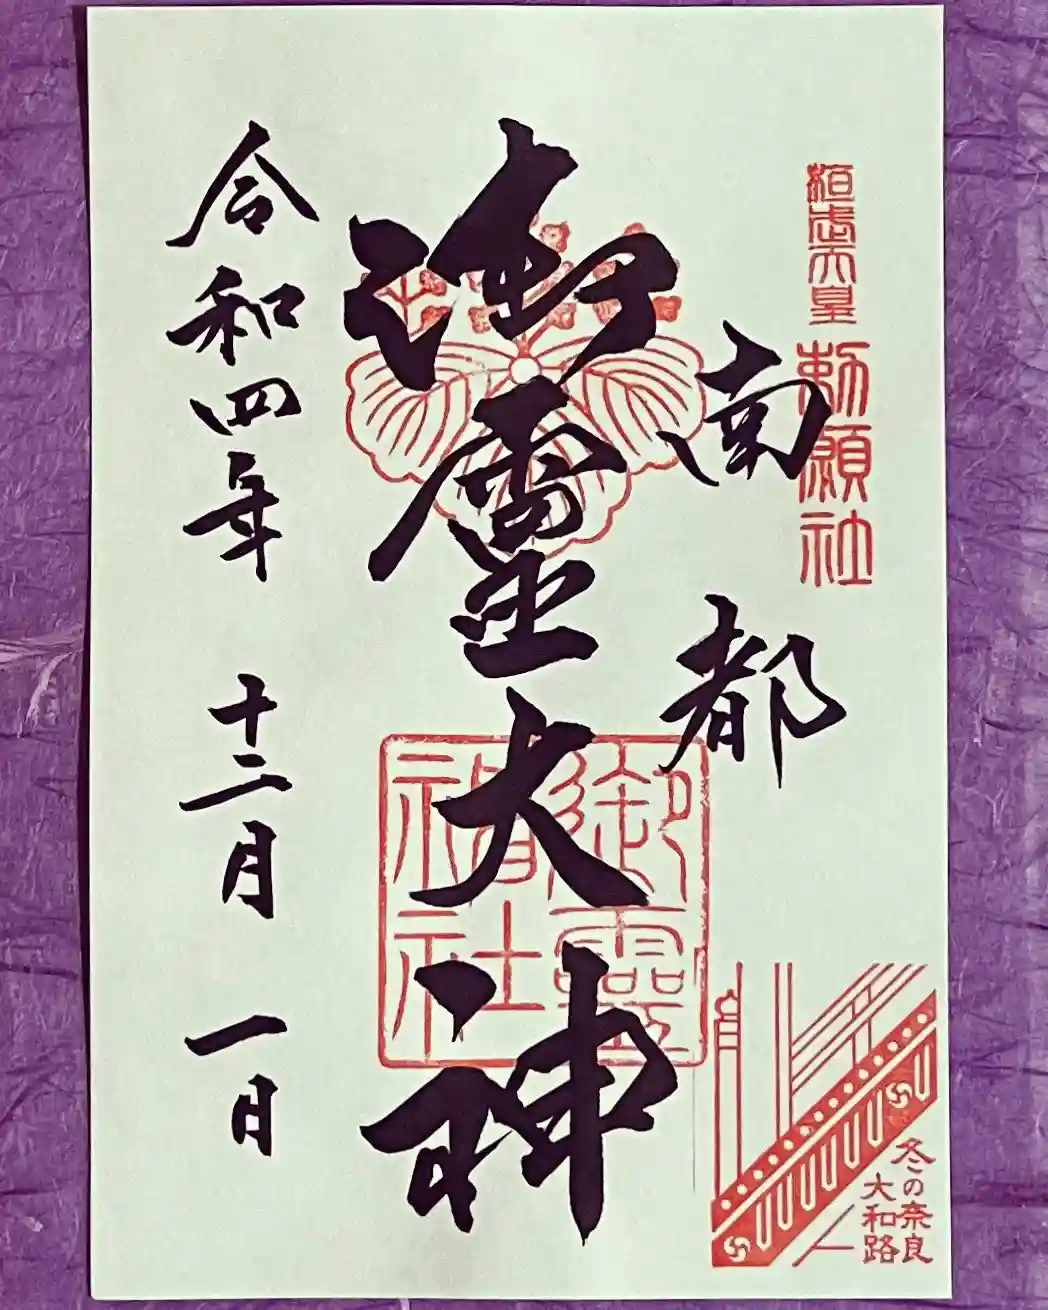 桓武天皇
勅願社
南都
御靈大神
御靈
神社
令和四年 十二月 一日
冬の奈良
大和路